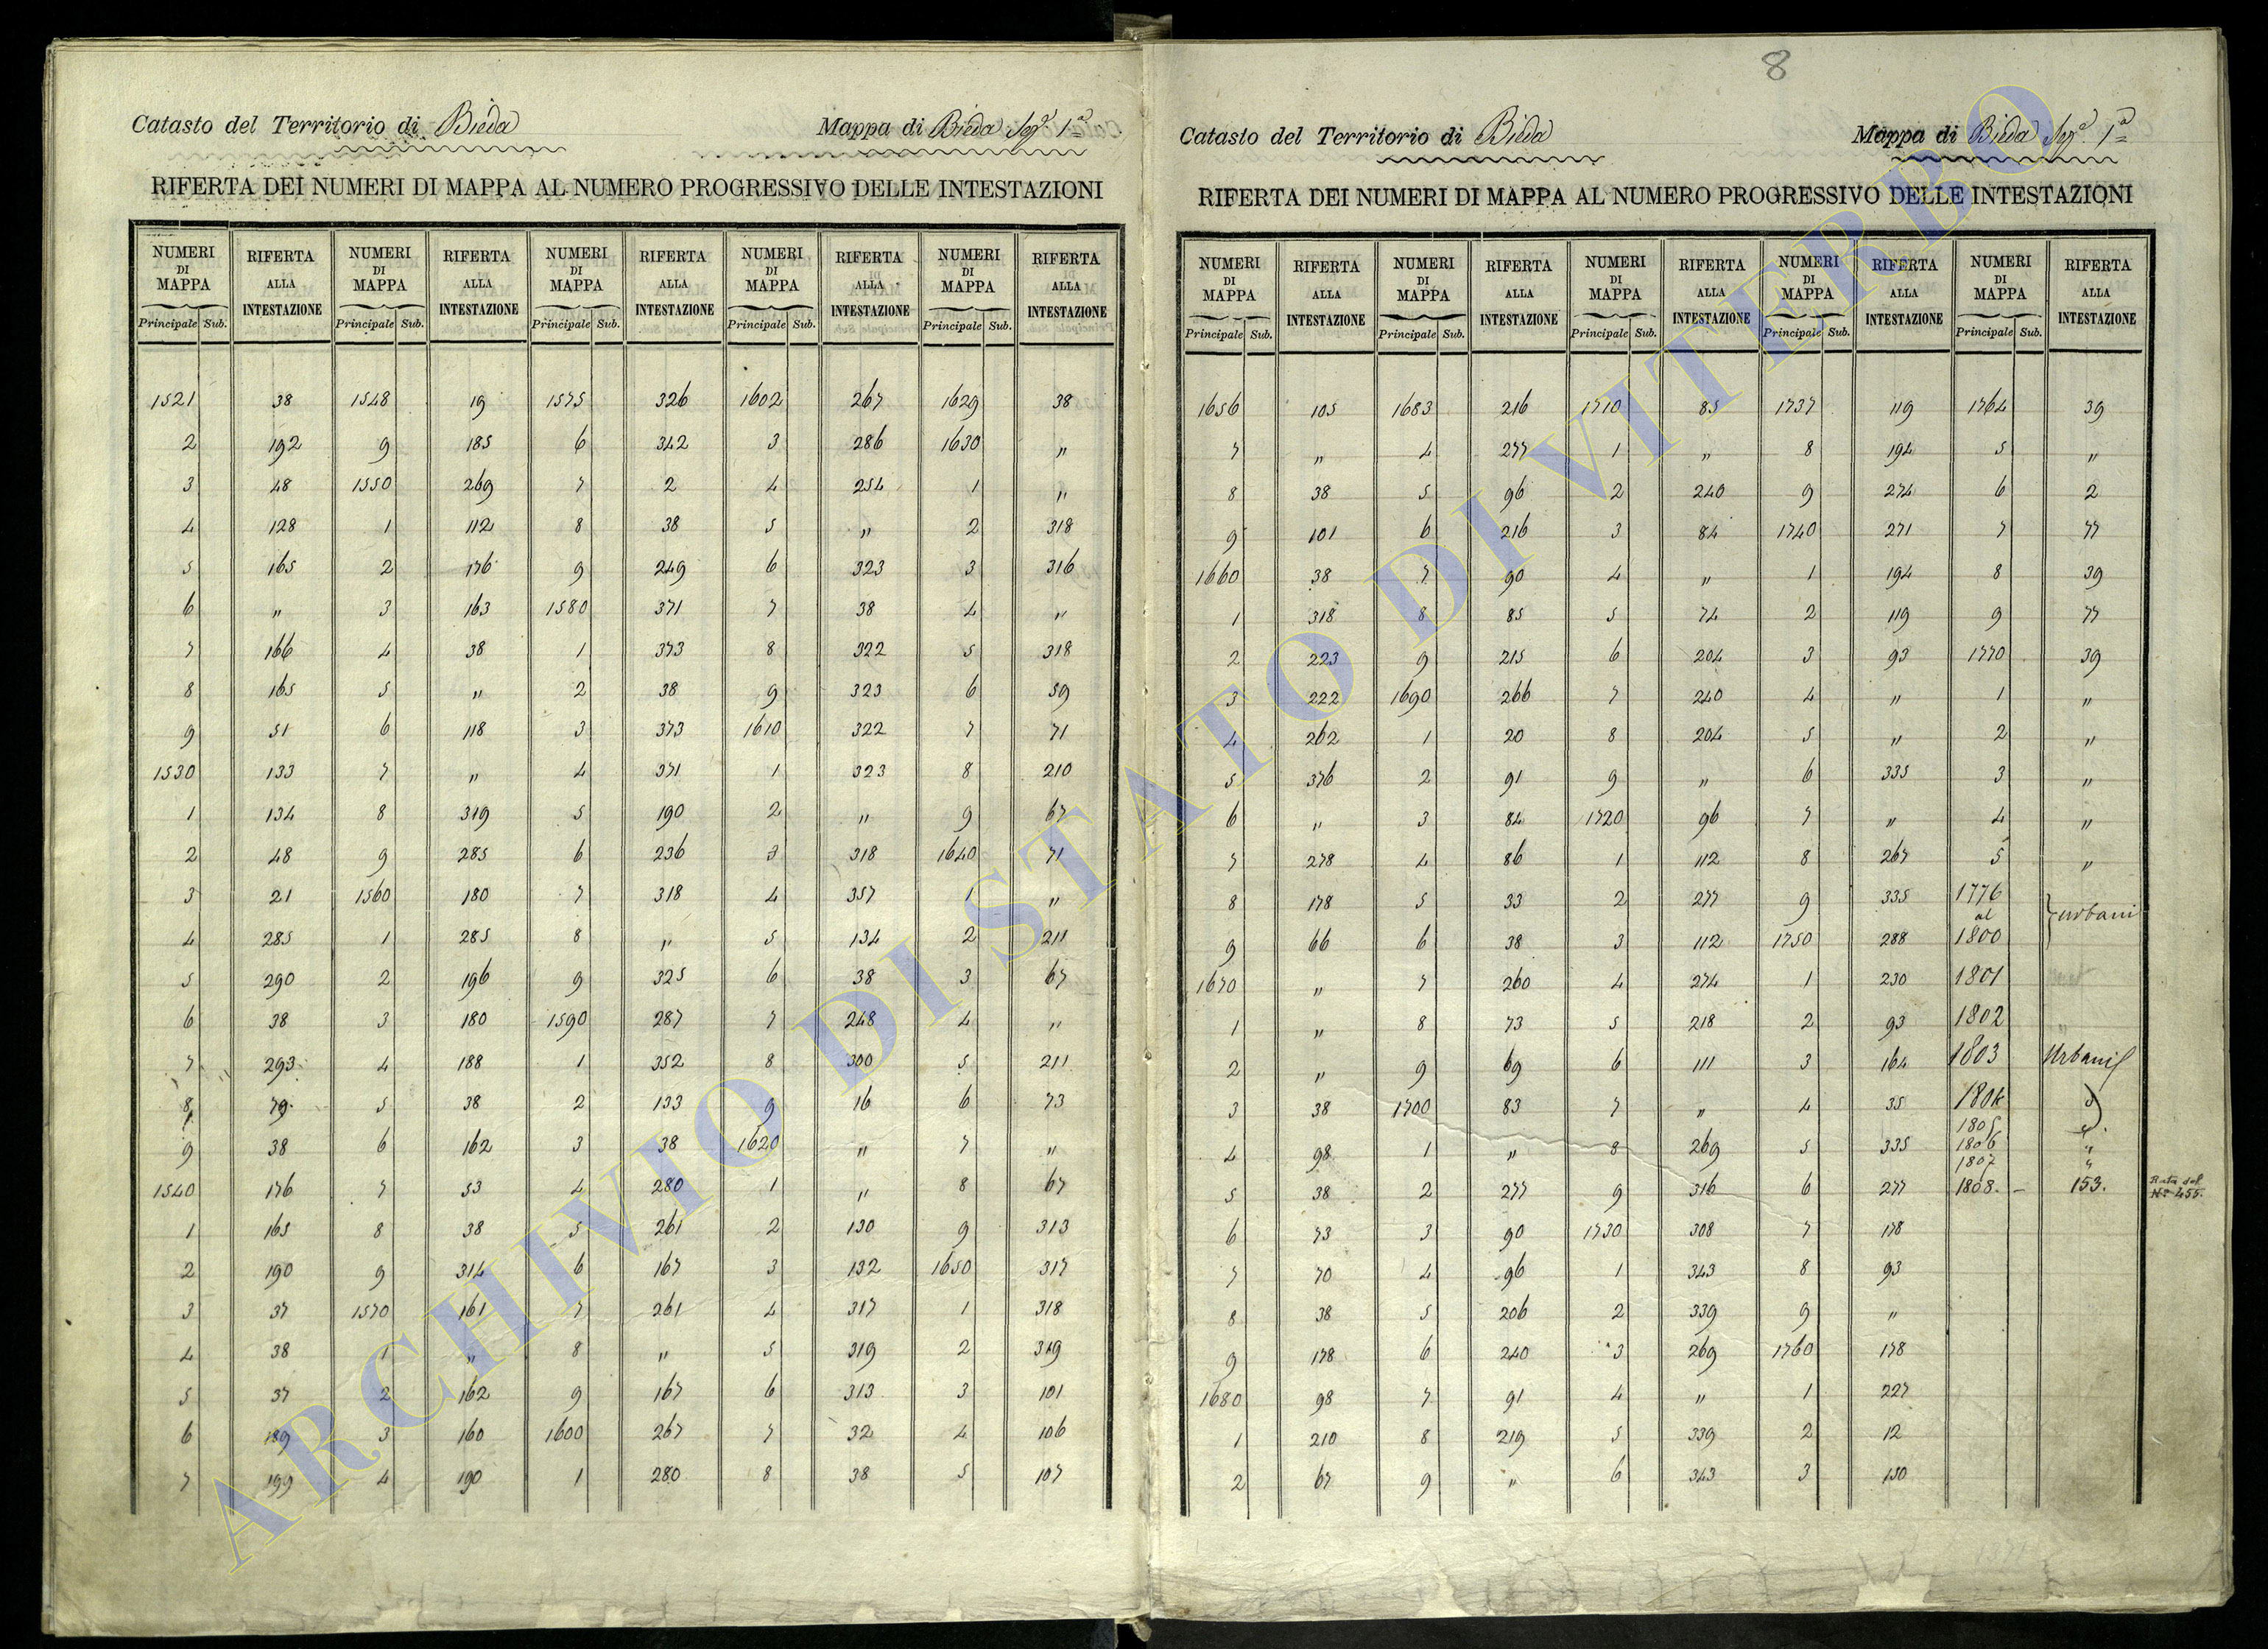 8
Catasto del Territorio di Bieda Mappa di Bieda Sez.e 1a
RIFERTA DEI NUMERI DI MAPPA AL NUMERO PROGRESSIVO DELLE INTESTAZIONI
NUMERI DI MAPPA RIFERTA ALLA INTESTAZIONE NUMERI DI MAPPA RIFERTA ALLA INTESTAZIONE NUMERI DI MAPPA RIFERTA ALLA INTESTAZIONE NUMERI DI MAPPA RIFERTA ALLA INTESTAZIONE NUMERI DI MAPPA RIFERTA ALLA INTESTAZIONE
Principale Sub. Principale Sub. Principale Sub. Principale Sub. Principale Sub.
1521 38 1548 19 1575 326 1602 267 1629 38
2 192 9 185 6 342 3 286 1630 "
3 48 1550 269 7 2 4 254 1 "
4 128 1 112 8 38 5 " 2 318
5 165 2 176 9 249 6 323 3 316
6 " 3 163 1580 371 7 38 4 "
7 166 4 38 1 373 8 322 5 318
8 165 5 " 2 38 9 323 6 59
9 51 6 118 3 373 1610 322 7 71
1530 133 7 " 4 371 1 323 8 210
1 134 8 319 5 190 2 " 9 67
2 48 9 285 6 236 3 318 1640 71
3 21 1560 180 7 318 4 357 1 "
4 285 1 285 8 " 5 134 2 211
5 290 2 196 9 325 6 38 3 67
6 38 3 180 1590 287 7 248 4 "
7 293 4 188 1 352 8 300 5 211
8 79 5 38 2 133 9 16 6 73
9 38 6 162 3 38 1620 " 7 "
1540 176 7 53 4 280 1 " 8 67
1 165 8 38 5 261 2 130 9 313
2 190 9 314 6 167 3 132 1650 317
3 37 1570 161 7 261 4 317 1 318
4 38 1 " 8 " 5 319 2 319
5 37 2 162 9 167 6 313 3 101
6 189 3 160 1600 267 7 32 4 106
7 199 4 190 1 280 8 38 5 107
Catasto del Territorio di Bieda Mappa di Bieda Sez.e 1a
RIFERTA DEI NUMERI DI MAPPA AL NUMERO PROGRESSIVO DELLE INTESTAZIONI
NUMERI DI MAPPA RIFERTA ALLA INTESTAZIONE NUMERI DI MAPPA RIFERTA ALLA INTESTAZIONE NUMERI DI MAPPA RIFERTA ALLA INTESTAZIONE NUMERI DI MAPPA RIFERTA ALLA INTESTAZIONE NUMERI DI MAPPA RIFERTA ALLA INTESTAZIONE
Principale Sub. Principale Sub. Principale Sub. Principale Sub. Principale Sub.
1656 105 1683 216 1710 85 1737 119 1764 39
7 " 4 277 1 " 8 194 5 "
8 38 5 96 2 240 9 274 6 2
9 101 6 216 3 84 1740 271 7 77
1660 38 7 90 4 " 1 194 8 39
1 318 8 85 5 74 2 119 9 77
2 223 9 215 6 204 3 93 1770 39
3 222 1690 266 7 240 4 " 1 "
4 262 1 20 8 204 5 " 2 "
5 376 2 91 9 " 6 335 3 "
6 " 3 84 1720 96 7 " 4 "
7 278 4 86 1 112 8 267 5 "
8 178 5 33 2 277 9 335 1776
al urbani
9 66 6 38 3 112 1750 288 1800
1670 " 7 260 4 274 1 230 1801
1 " 8 73 5 218 2 93 1802 "
2 " 9 69 6 111 3 164 1803 Urbani
3 38 1700 83 7 " 4 35 1804
1805 "
4 98 1 " 8 269 5 335 1806 "
1807 "
5 38 2 277 9 316 6 277 1808. – 153. Rata del N° 455.
6 73 3 90 1730 308 7 178
7 70 4 96 1 343 8 93
8 38 5 206 2 339 9 "
9 178 6 240 3 269 1760 178
1680 98 7 91 4 " 1 227
1 210 8 219 5 339 2 12
2 67 9 " 6 343 3 150
ARCHIVIO DI STATO DI VITERBO